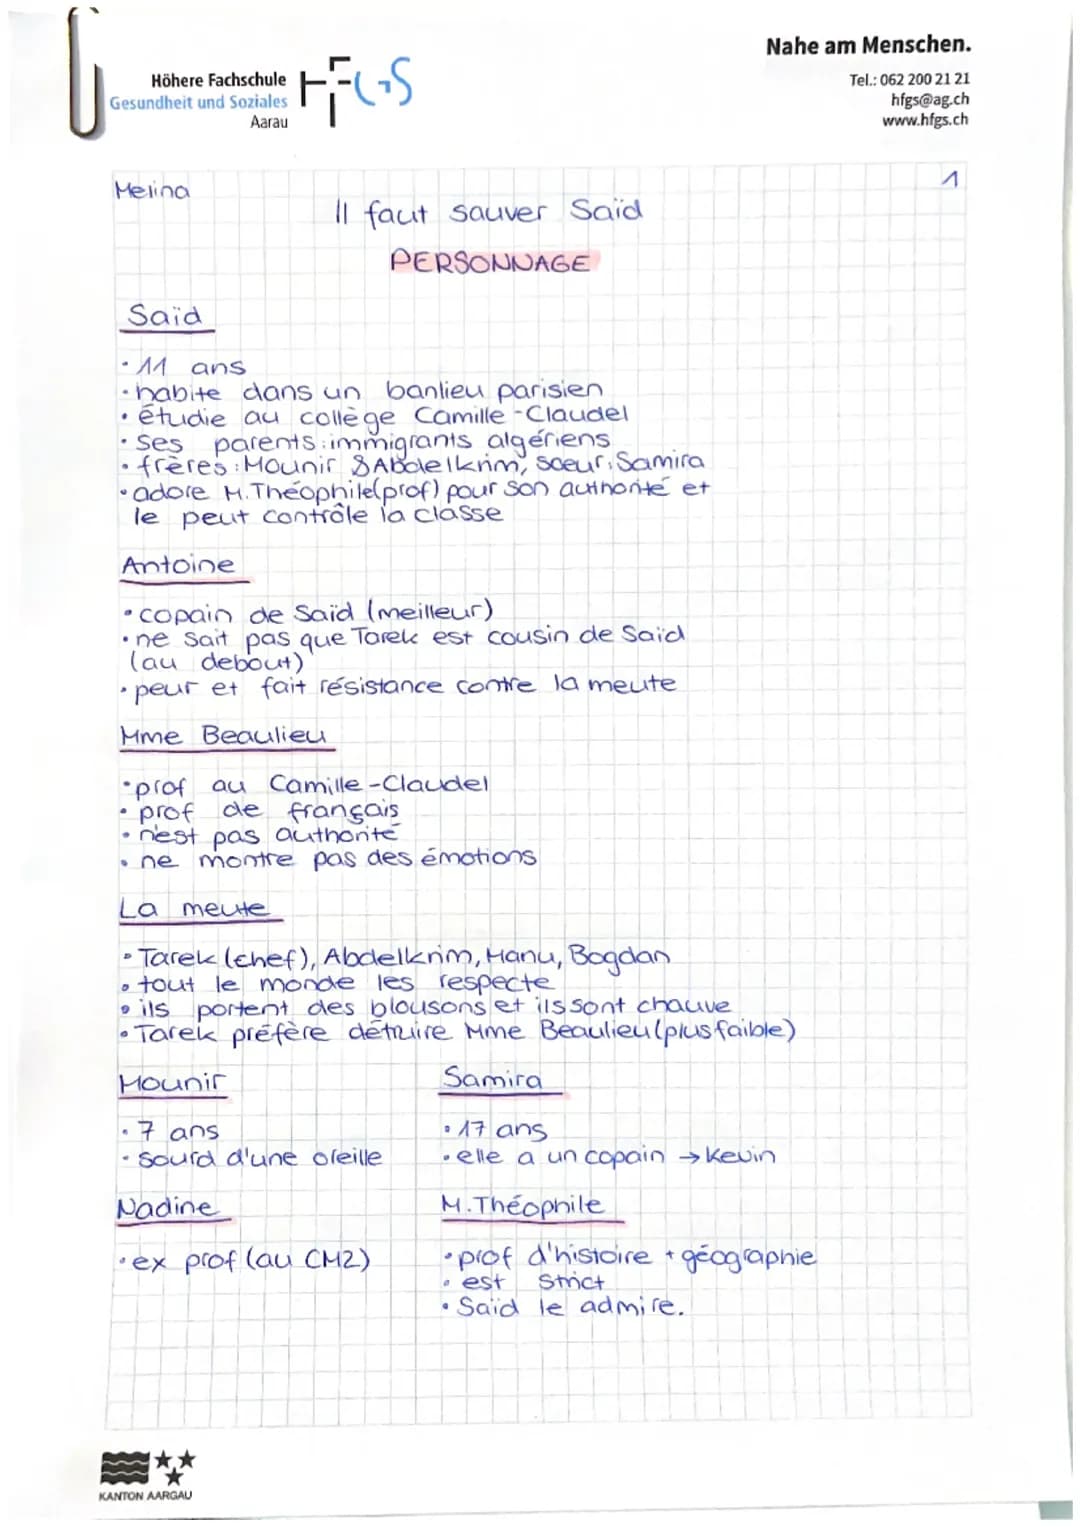 Nahe am Menschen.
Höhere Fachschule
Gesundheit und Soziales
Aarau
HFGS
Tel.: 062 200 21 21
hfgs@ag.ch
www.hfgs.ch
Melina
1
Il faut sauver Saïd
PERSONNAGE
Saïd
• 11 ans
• habite dans un banlieu parisien
• étudie au collège Camille-Claudel
• ses parents: immigrants algériens
• frères: Mounir & Abdelkrim, soeur: Samira
• adore M.Théophile(prof) pour son authorité et
le peut contrôle la classe
Antoine
• copain de Saïd (meilleur)
• ne sait pas que Tarek est cousin de Saïd
(au debout)
• peur et fait résistance contre la meute
Mme Beaulieu
• prof au Camille-Claudel
• prof de français
• n'est pas authorité
• ne montre pas des émotions
La meute
• Tarek (chef), Abdelkrim, Manu, Bogdan
• tout le monde les respecte
• ils portent des blousons et ils sont chauve
• Tarek préfère détruire Mme Beaulieu (plus faible)
Mounir
• 7 ans
• sourd d'une oreille
Samira
• 17 ans
• elle a un copain → Kevin
Nadine
• ex prof (au CM2)
M.Théophile
• prof d'histoire + géographie
• est strict
• Saïd le admire.
KANTON AARGAU